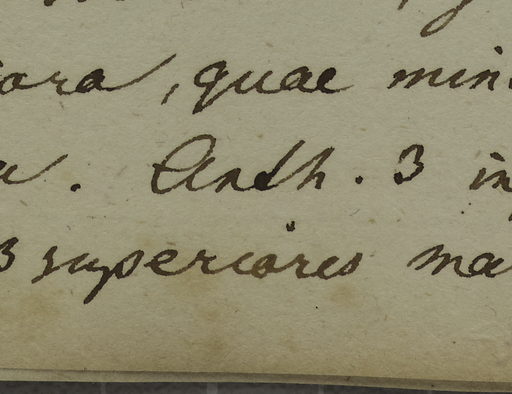 ora, quae min
. Anth. 3 in
3 superiores ma